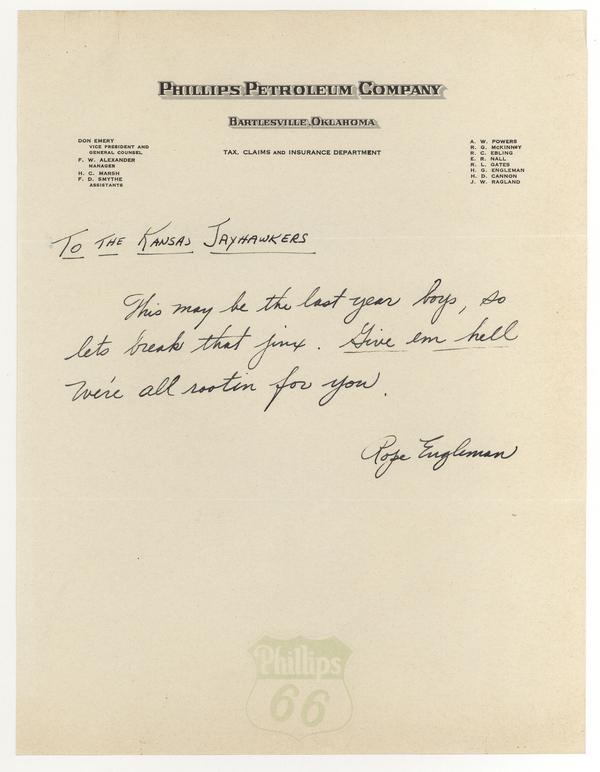 PHILLIPS PETROLEUM COMPANY
BARTLESVILLE, OKLAHOMA
TAX, CLAIMS AND INSURANCE DEPARTMENT
DON EMERY
VICE PRESIDENT AND
GENERAL COUNSEL
F. W. ALEXANDER
MANAGER
H. C. MARSH
F. D. SMYTHE
ASSISTANTS
A. W. POWERS
R. G. McKINNEY
R. C. EBLING
E. R. NALL
R. L. GATES
H. G. ENGLEMAN
H. D. CANNON
J. W. RAGLAND
TO THE KANSAS JAYHAWKERS
This may be the last year boys, so
lets break that jinx. Give em hell
We're all rootin for you.
Rope Engleman
Phillips
66